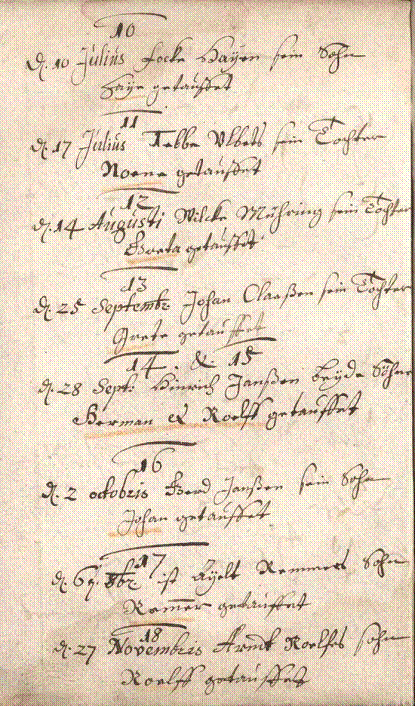 10
d. 10 Julius Focke Hayen sein Sohn
Haye getauffet
11
d. 17 Julius Tebbe Ulbets sein Tochter
Noena getauffet
12
d. 14 Augusti Wilcke Mühring sein Tochter
getauffet
13
d. 25 Septembr Johan Claaßen sein Tochter
Grete getauffet
14. & 15
d. 28 Sept: Hinrich Janßen beyde Söhne
Herman & Roelff getauffet
16
d. 2 octobris Berd Janßen sein Sohn
Johan getauffet
17
d. 8br ist Ayelt Remmers Sohn
Remmer getauffet
18
d. 27 Novembris Arndt Roelfes sohn
Roelff getauffet